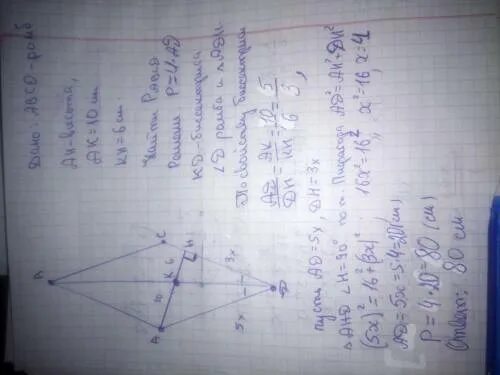 Дано: ABCD-ромб
AH-высота,
AK=10 см
KH=6 см
Найти P ABCD
Решение P=4·AD
KD-биссектриса
∠D ромба и ΔADH
По свойству биссектрисы
AD/DH = AK/KH = 10/6 = 5/3,
пусть AD=5x, DH=3x
ΔAHD ∠H=90° по т. Пифагора AD²=AH²+DH²
(5x)²=16²+(3x)² 16x²=16², x²=16, x=4
AD=5x=5·4=20(см)
P=4·20=80 (см)
Ответ: 80 см.
B
C
H
6
K
10
A
3x
5x
D